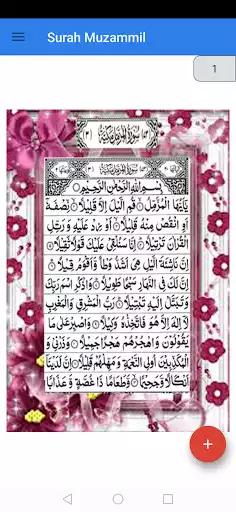 Surah Muzammil
1
سورة المزمل مكية
بسم الله الرحمن الرحيم
يٰۤاَيُّهَا الْمُزَّمِّلُ ۙ قُمِ الَّيْلَ اِلَّا قَلِيْلًا ۙ نِّصْفَهٗۤ
اَوِ انْقُصْ مِنْهُ قَلِيْلًا ۙ اَوْ زِدْ عَلَيْهِ وَ رَتِّلِ
الْقُرْاٰنَ تَرْتِيْلًا ؕ اِنَّا سَنُلْقِيْ عَلَيْكَ قَوْلًا ثَقِيْلًا
اِنَّ نَاشِئَةَ الَّيْلِ هِيَ اَشَدُّ وَطْاً وَّ اَقْوَمُ قِيْلًا ؕ
اِنَّ لَكَ فِي النَّهَارِ سَبْحًا طَوِيْلًا ؕ وَاذْكُرِ اسْمَ رَبِّكَ
وَ تَبَتَّلْ اِلَيْهِ تَبْتِيْلًا ؕ رَبُّ الْمَشْرِقِ وَ الْمَغْرِبِ
لَاۤ اِلٰهَ اِلَّا هُوَ فَاتَّخِذْهُ وَكِيْلًا وَ اصْبِرْ عَلٰى مَا
يَقُوْلُوْنَ وَ اهْجُرْهُمْ هَجْرًا جَمِيْلًا وَ ذَرْنِيْ وَ
الْمُكَذِّبِيْنَ اُولِي النَّعْمَةِ وَ مَهِّلْهُمْ قَلِيْلًا اِنَّ لَدَيْنَاۤ
اَنْكَالًا وَّ جَحِيْمًا ۙ وَّ طَعَامًا ذَا غُصَّةٍ وَّ عَذَابًا